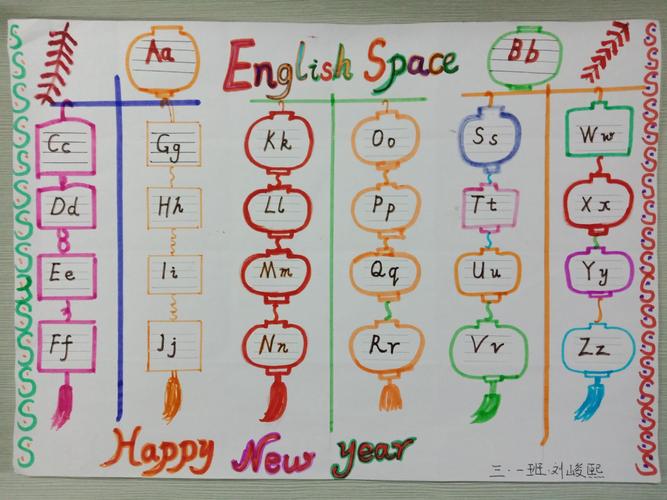 Aa English Space Bb
Cc Gg Kk Oo Ss Ww
Dd Hh Ll Pp Tt Xx
Ee Ii Mm Qq Uu Yy
Ff Jj Nn Rr Vv Zz
Happy New year
三.一班.刘峻熙